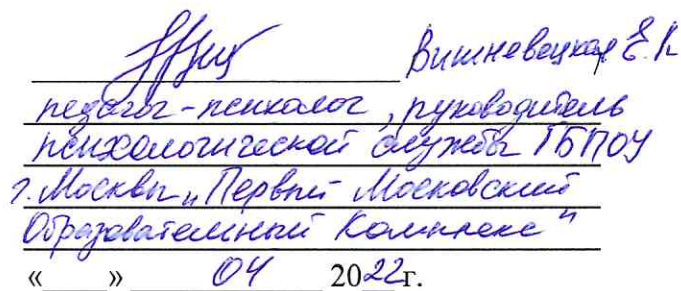 Вишневецкая Е.К
педагог-психолог, руководитель
психологической службы ГБПОУ
г. Москвы „Первый Московский
Образовательный Комплекс"
«____» ____04____ 2022г.